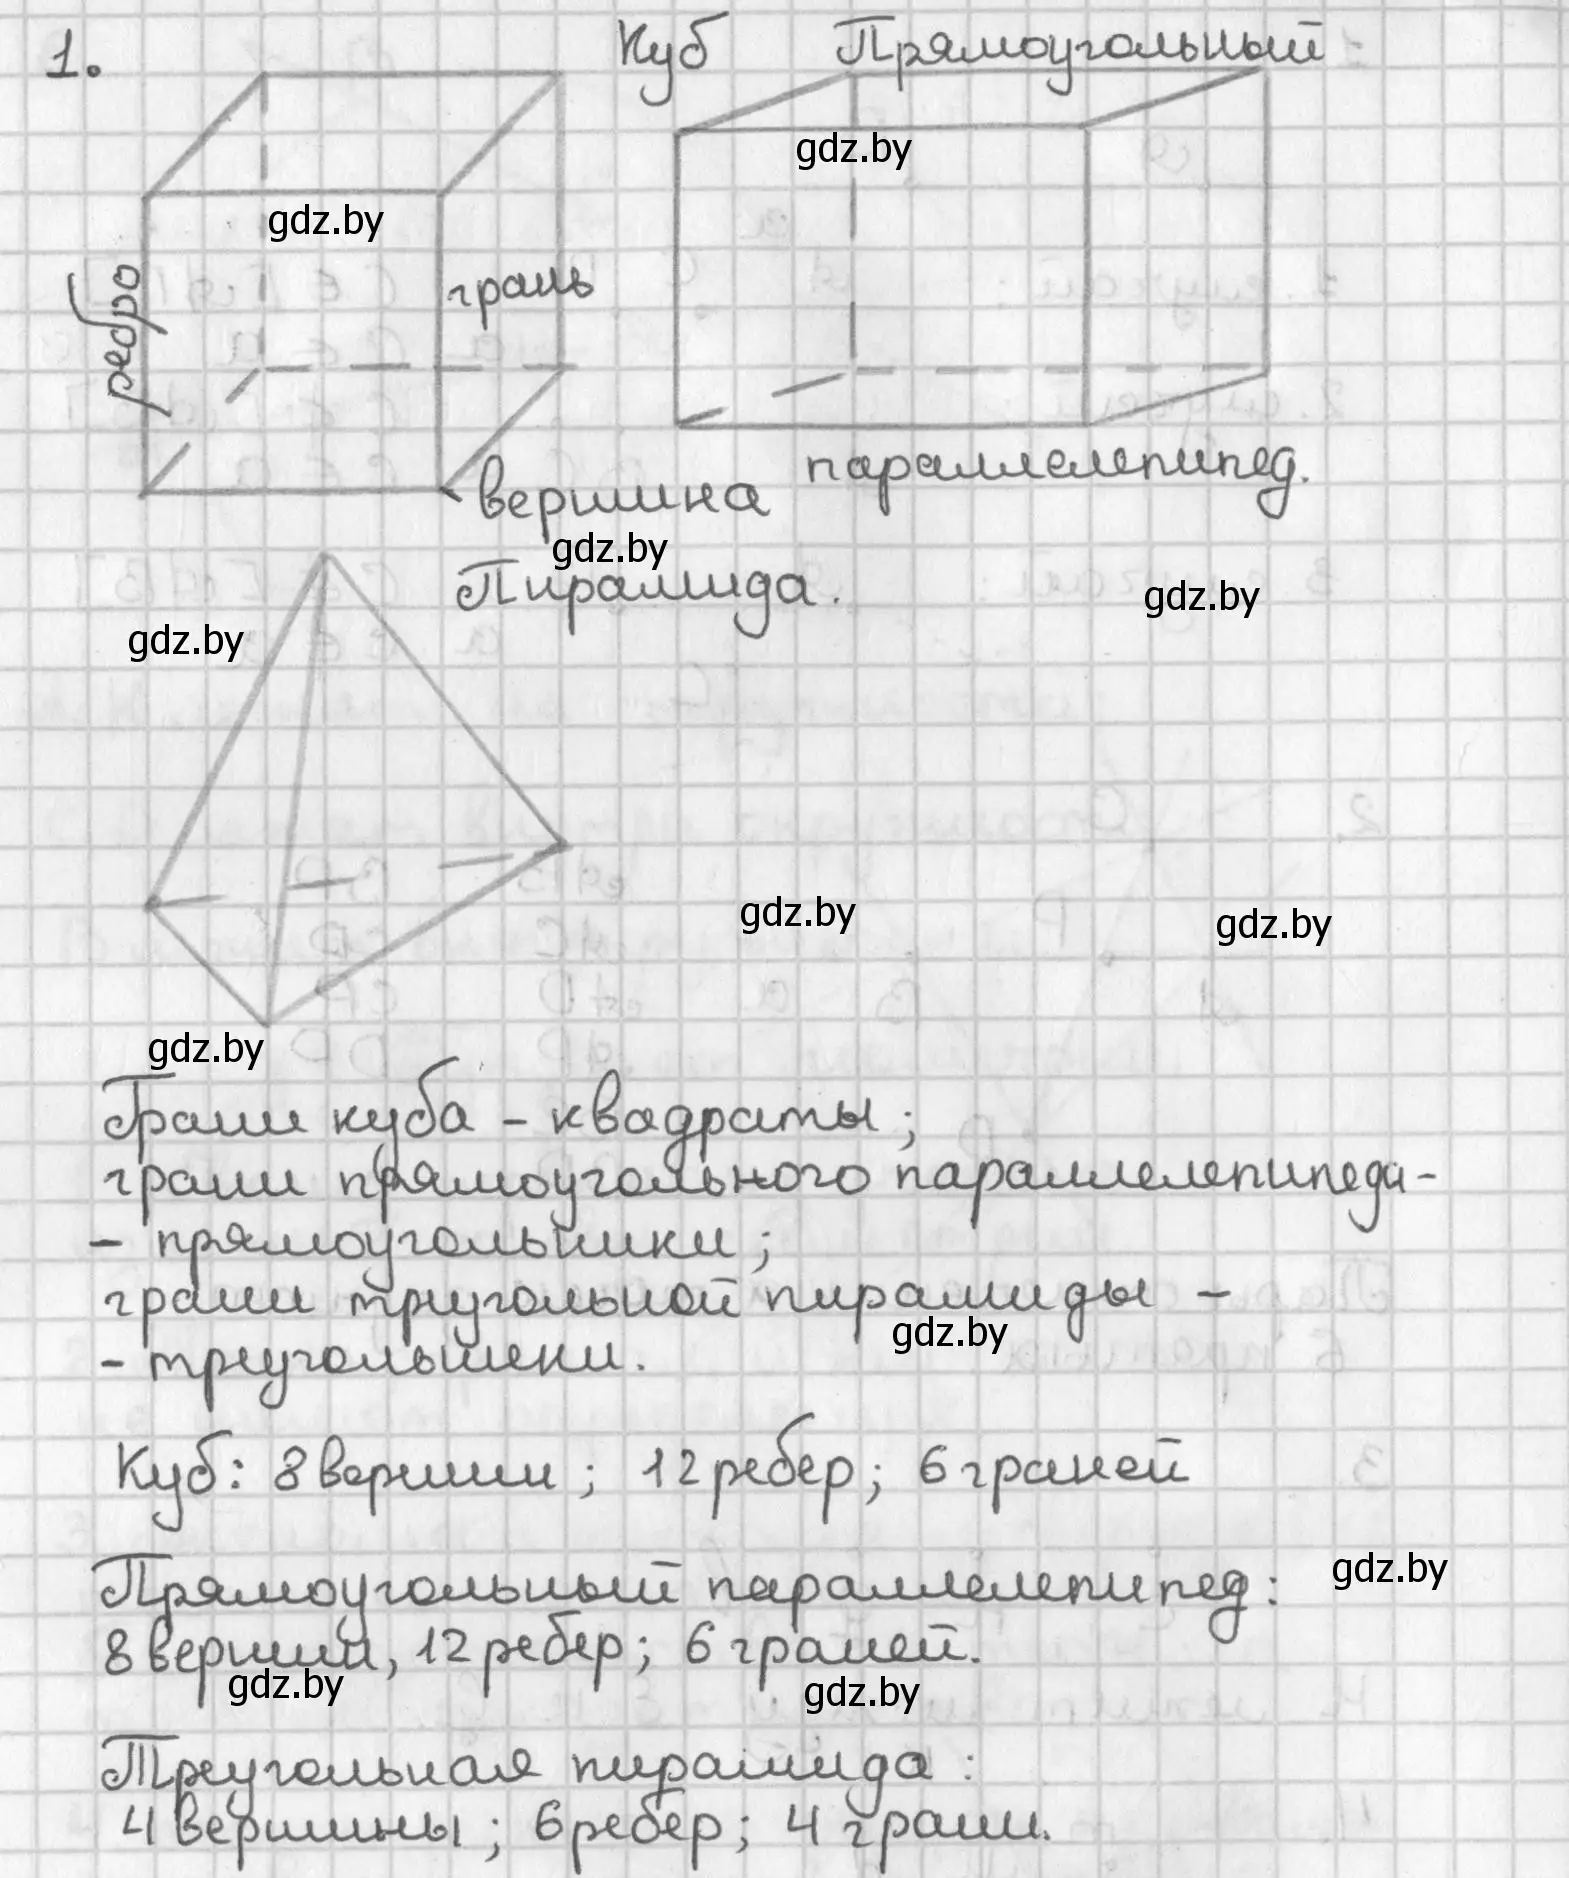 1.
Куб
Прямоугольный
gdz.by
gdz.by
ребро
грань
параллелепипед.
вершина
gdz.by
Пирамида.
gdz.by
gdz.by
gdz.by
gdz.by
gdz.by
Грани куба - квадраты;
грани прямоугольного параллелепипеда -
- прямоугольники;
грани треугольной пирамиды -
gdz.by
- треугольники.
Куб: 8 вершин; 12 ребер; 6 граней
Прямоугольный параллелепипед:
gdz.by
8 вершин, 12 ребер; 6 граней.
gdz.by
gdz.by
Треугольная пирамида:
4 вершины; 6 ребер; 4 грани.